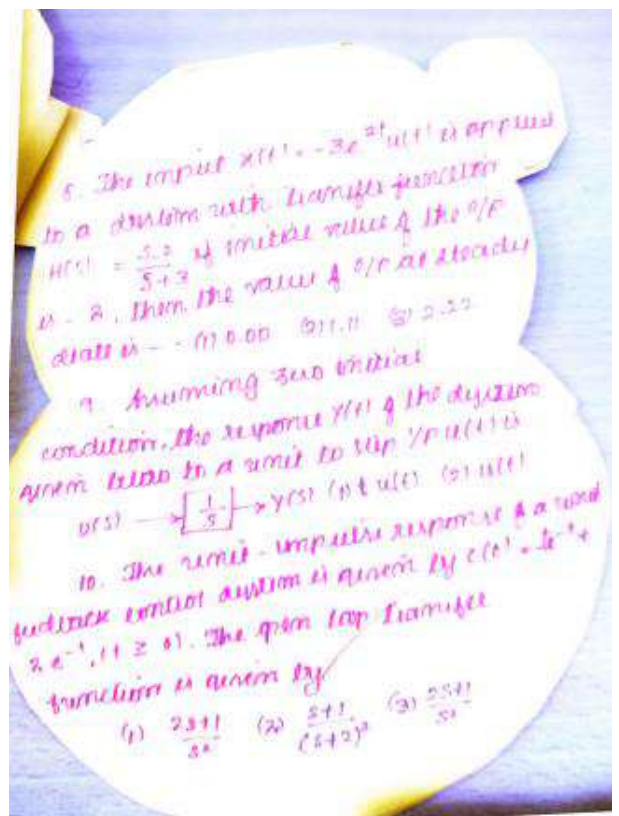 8. The input x(t) = -3e^2t u(t) is applied
to a system with transfer function
H(s) = s-2/s+3 if initial value of the o/p
is -2, then the value of o/p at steady
state is -- (1) 0.00 (2) 1.11 (3) 2.22
9. Assuming zero initial
condition, the response y(t) of the system
given below to a unit to step i/p u(t) is
U(s) → 1/s → Y(s) (1) t u(t) (2) u(t)
10. The unit-impulse response of a unit
feedback control system is given by c(t) = -te^-t +
2e^-t, (t ≥ 0). The open loop transfer
function is given by
(1) 2s+1/s² (2) s+1/(s+2)² (3) 2s+1/s²